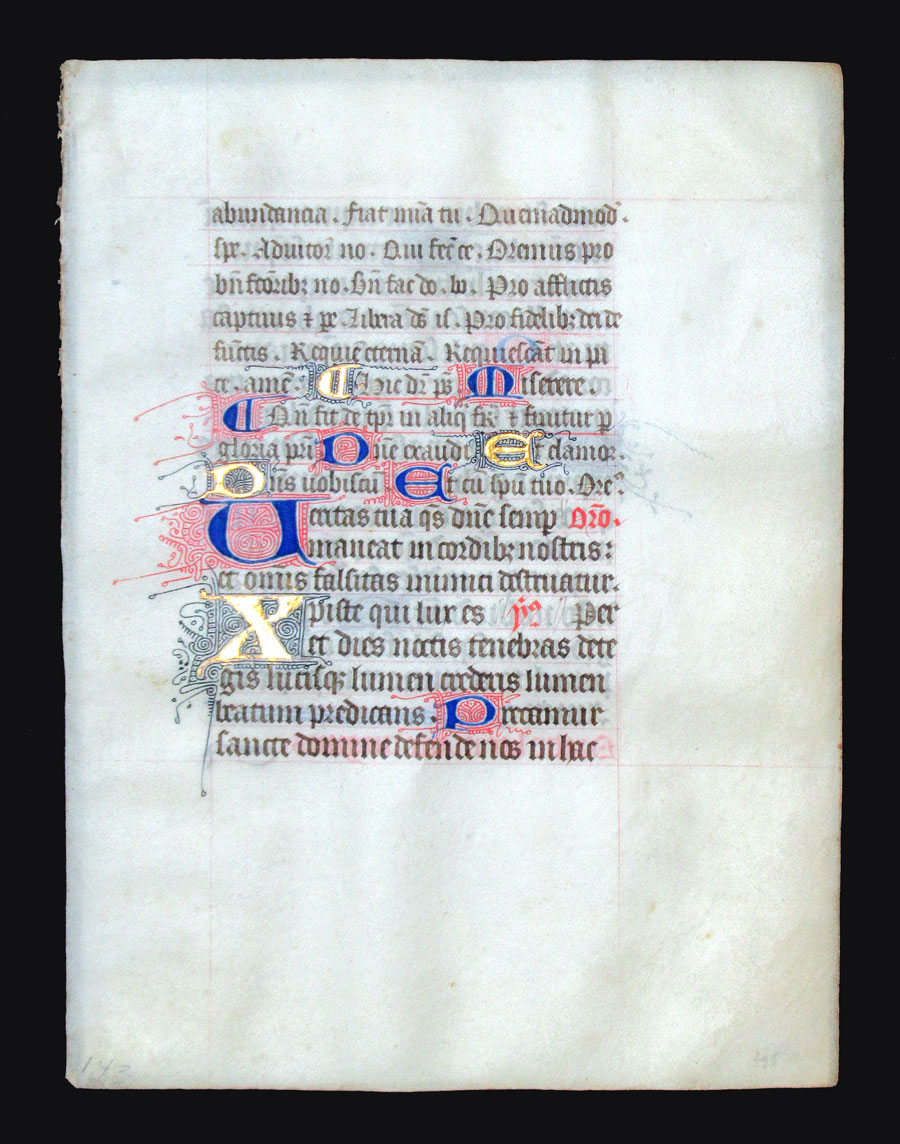 abundancia. Fiat mīa tū. Quēmadmod̄.
spe. Adiutor no. Qui fec̄ ce. Oremus pro
bn̄fcōribꝫ no. Bn̄ fac do. Pro afflictis
captiuis ⁊ pe. Libera ds̄ is. Pro fidelibꝫ dei de
fūctis. Requiē eternā. Requiescāt in pa
ce. amē. Hic dr̄ ps̄ Miserere
Nō fit de tpr̄ in aliq̄ ⁊ finitur p
gloria pr̄i Dn̄e exaudi Et clamor.
Dn̄s uobiscū Et cū spū tuo. Ore᷒.
Ueritas tua q̄s dn̄e semp Orō.
maneat in cordibꝫ nostris:
et omīs falsitas inimici destruatur.
Xpiste qui lux es Per
et dies noctis tenebras dete
gis lucisqꝫ lumen crederis lumen
beatum predicans. Precamur
sancte domine defende nos in hac
142